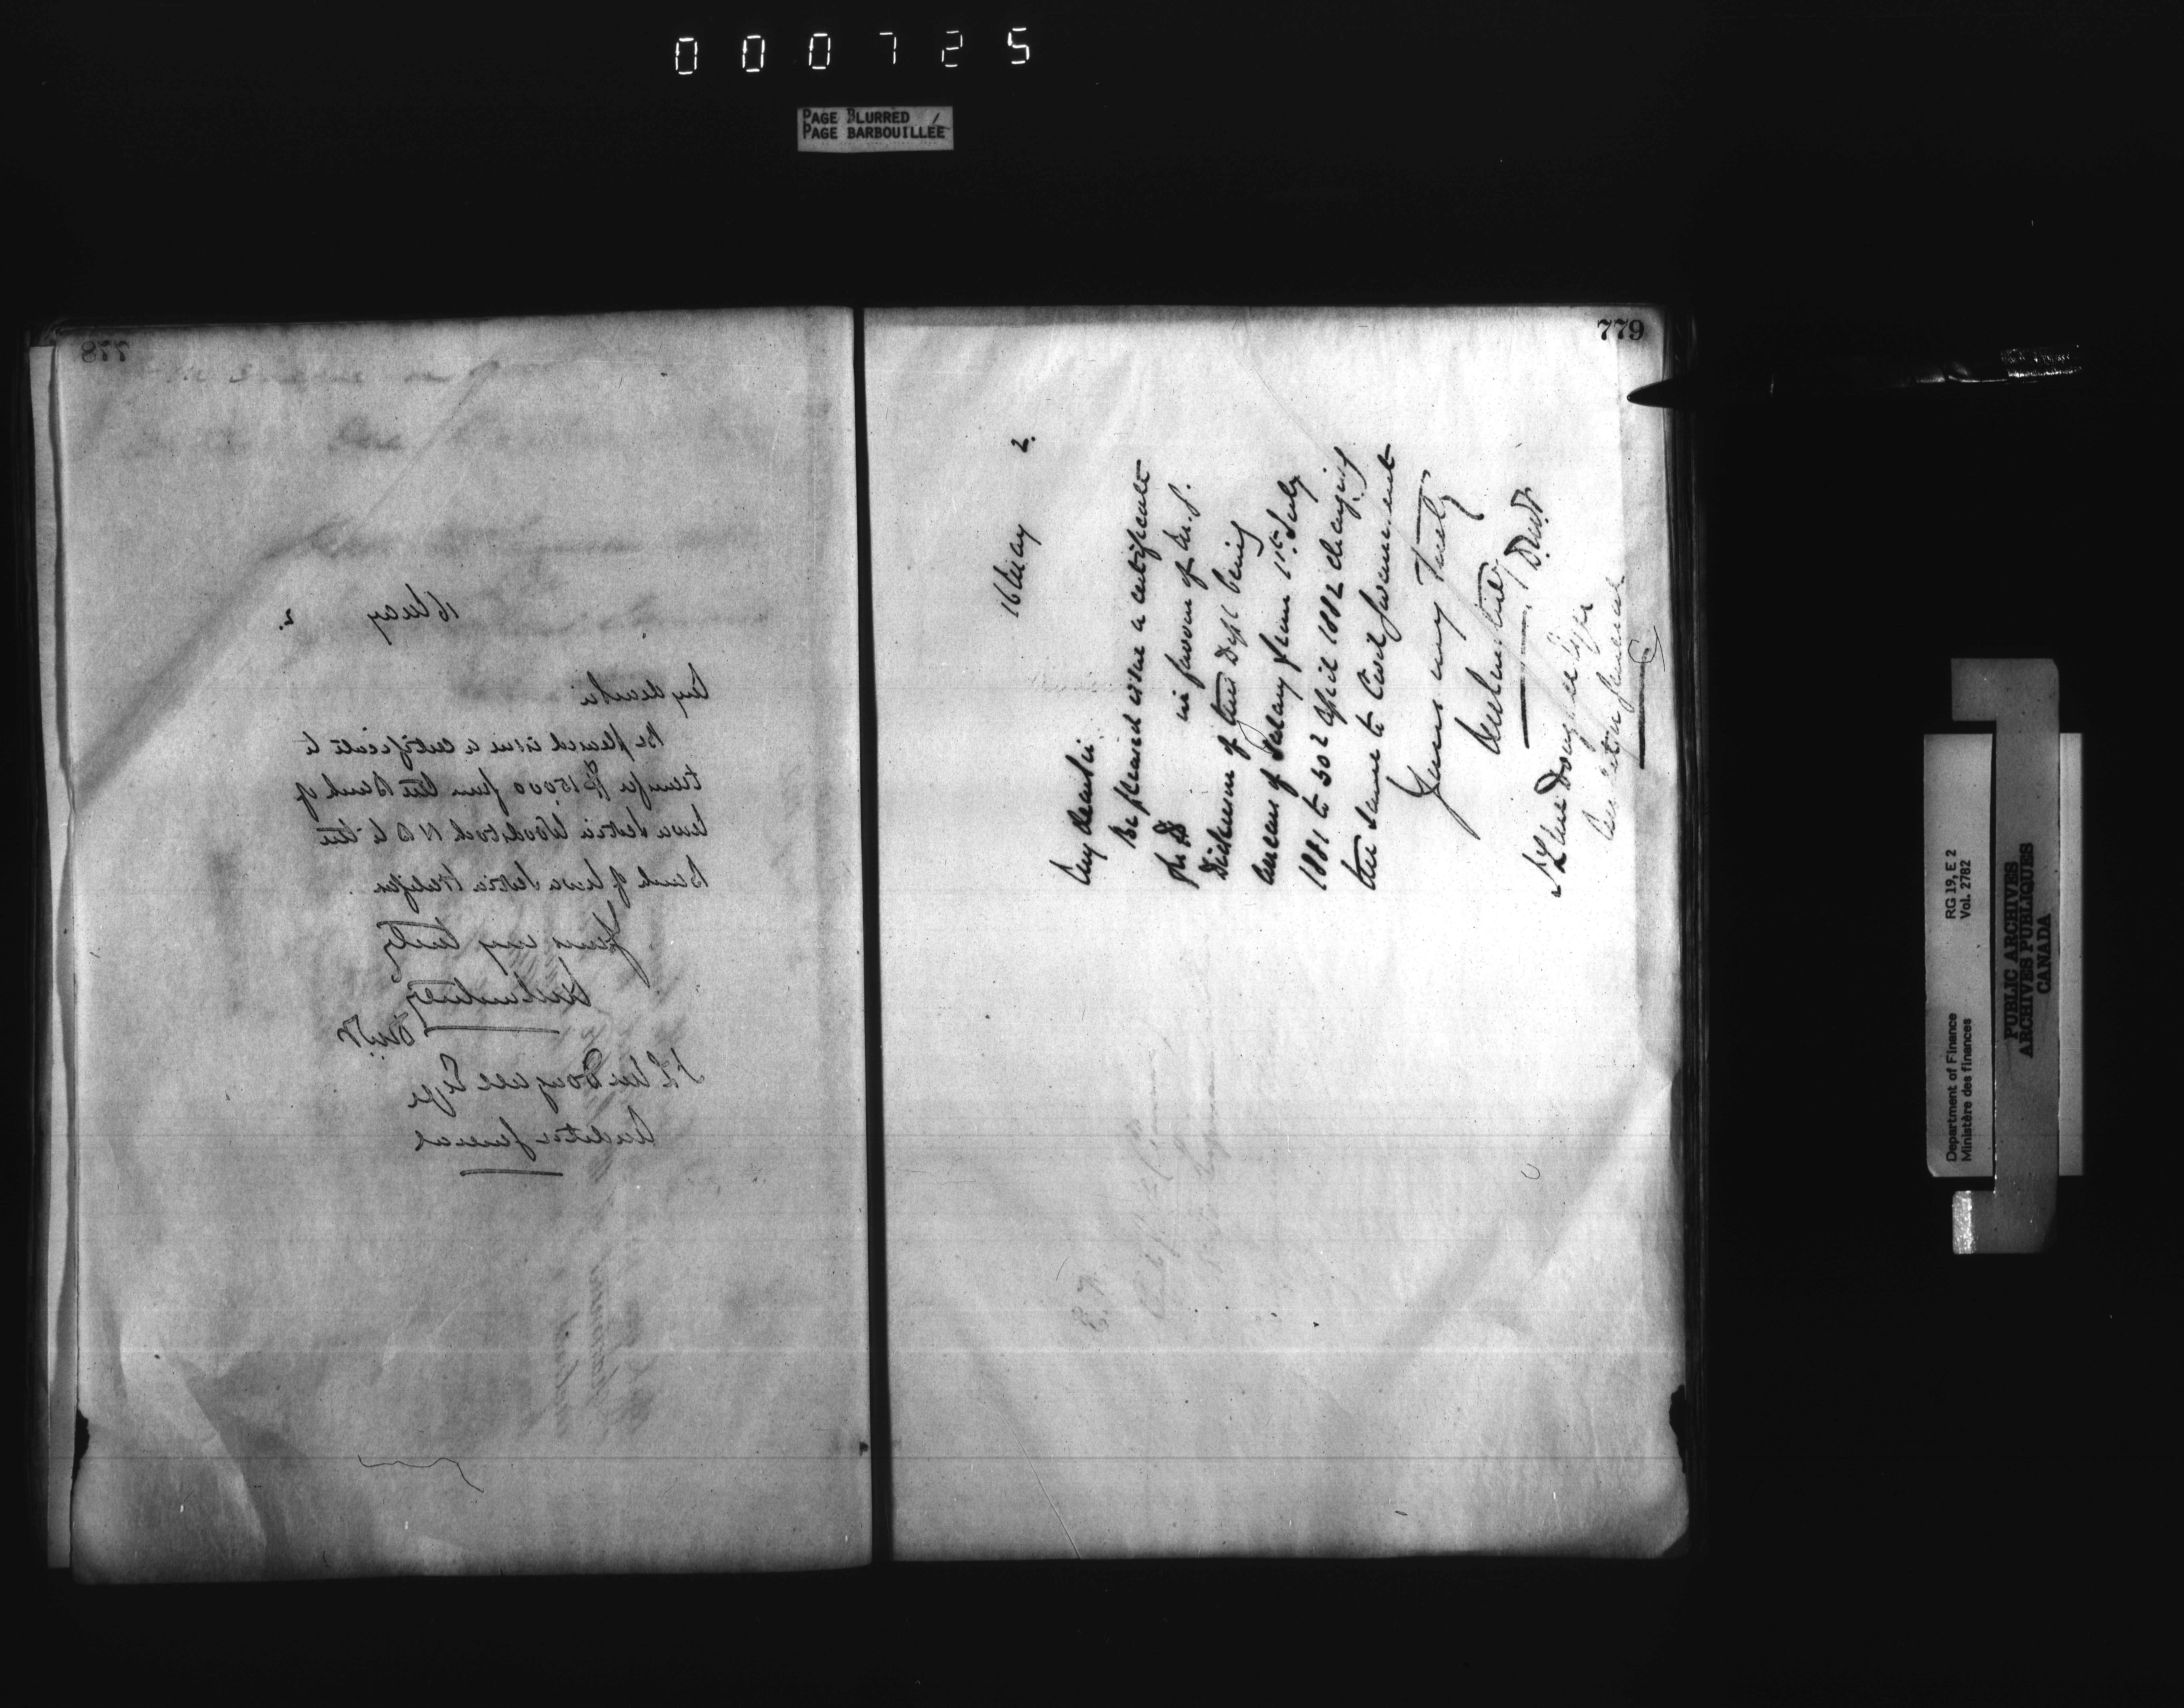 000725
PAGE BLURRED
PAGE BARBOUILLÉE
778
16 May 2.
My dear Sir
Be pleased issue a certificate to
transfer $15000 from the Bank of
Nova Scotia Woodstock N B to the
Bank of Nova Scotia Halifax.
Yours very truly
J L McDougall Esqr
Auditor General
779
16 May 2.
My dear Sir
Be pleased issue a certificate
for $ in favour of Mr. J.
Dickinson of this Dept being
arrears of salary from 1st July
1881 to 30th April 1882 charging
the same to Civil Government
Yours very truly
J L McDougall Esqr
Auditor General
Department of Finance
Ministère des finances
RG 19, E 2
Vol. 2782
PUBLIC ARCHIVES
ARCHIVES PUBLIQUES
CANADA